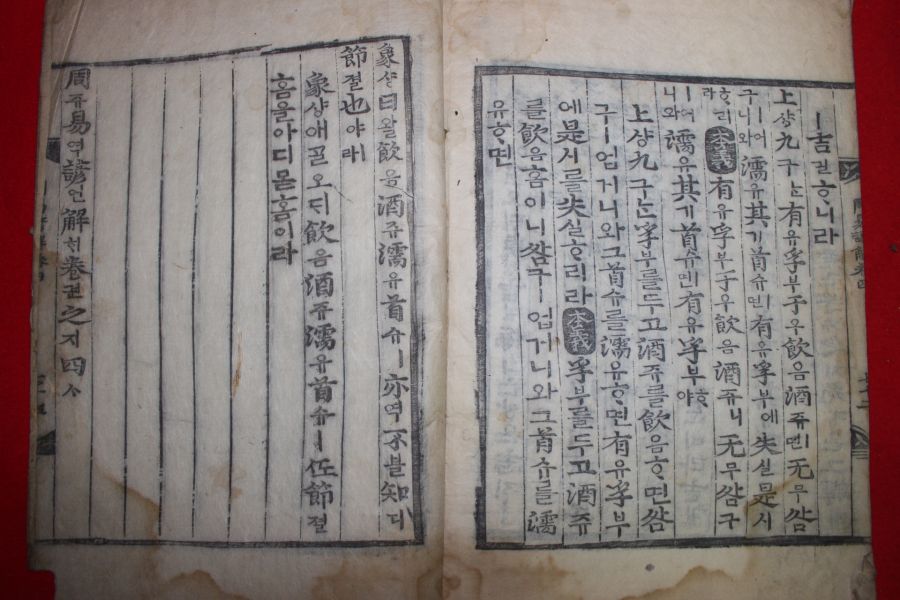 ㅣ吉길ᄒᆞ니라
上샹九구ᄂᆞᆫ有유孚부于우飮음酒쥬ㅣ면无무咎
구ㅣ어니와濡유其기首슈ㅣ면有유孚부에失실是시
ᄒᆞ리라本義有유孚부于우飮음酒쥬ㅣ니无무咎구
ㅣ어니와濡유其기首슈ㅣ면有유孚부ᄒᆞ야
上샹九구ᄂᆞᆫ孚부를두고酒쥬를飮음ᄒᆞ면咎
구ㅣ업거니와그首슈를濡유ᄒᆞ면有유孚부
에是시를失실ᄒᆞ리라本義孚부를두고酒쥬
를飮음홈이니咎구ㅣ업거니와그首슈를濡
유ᄒᆞ면
象샹曰왈飮음酒쥬濡유首슈ㅣ亦역不블知디
節졀也야ㅣ라
象샹애ᄀᆞᆯ오ᄃᆡ飮음酒쥬濡유首슈ㅣᄯᅩ節졀
홈을아디몯홈이라
周쥬易역諺언解ᄒᆡ卷권之지四ᄉᆞ